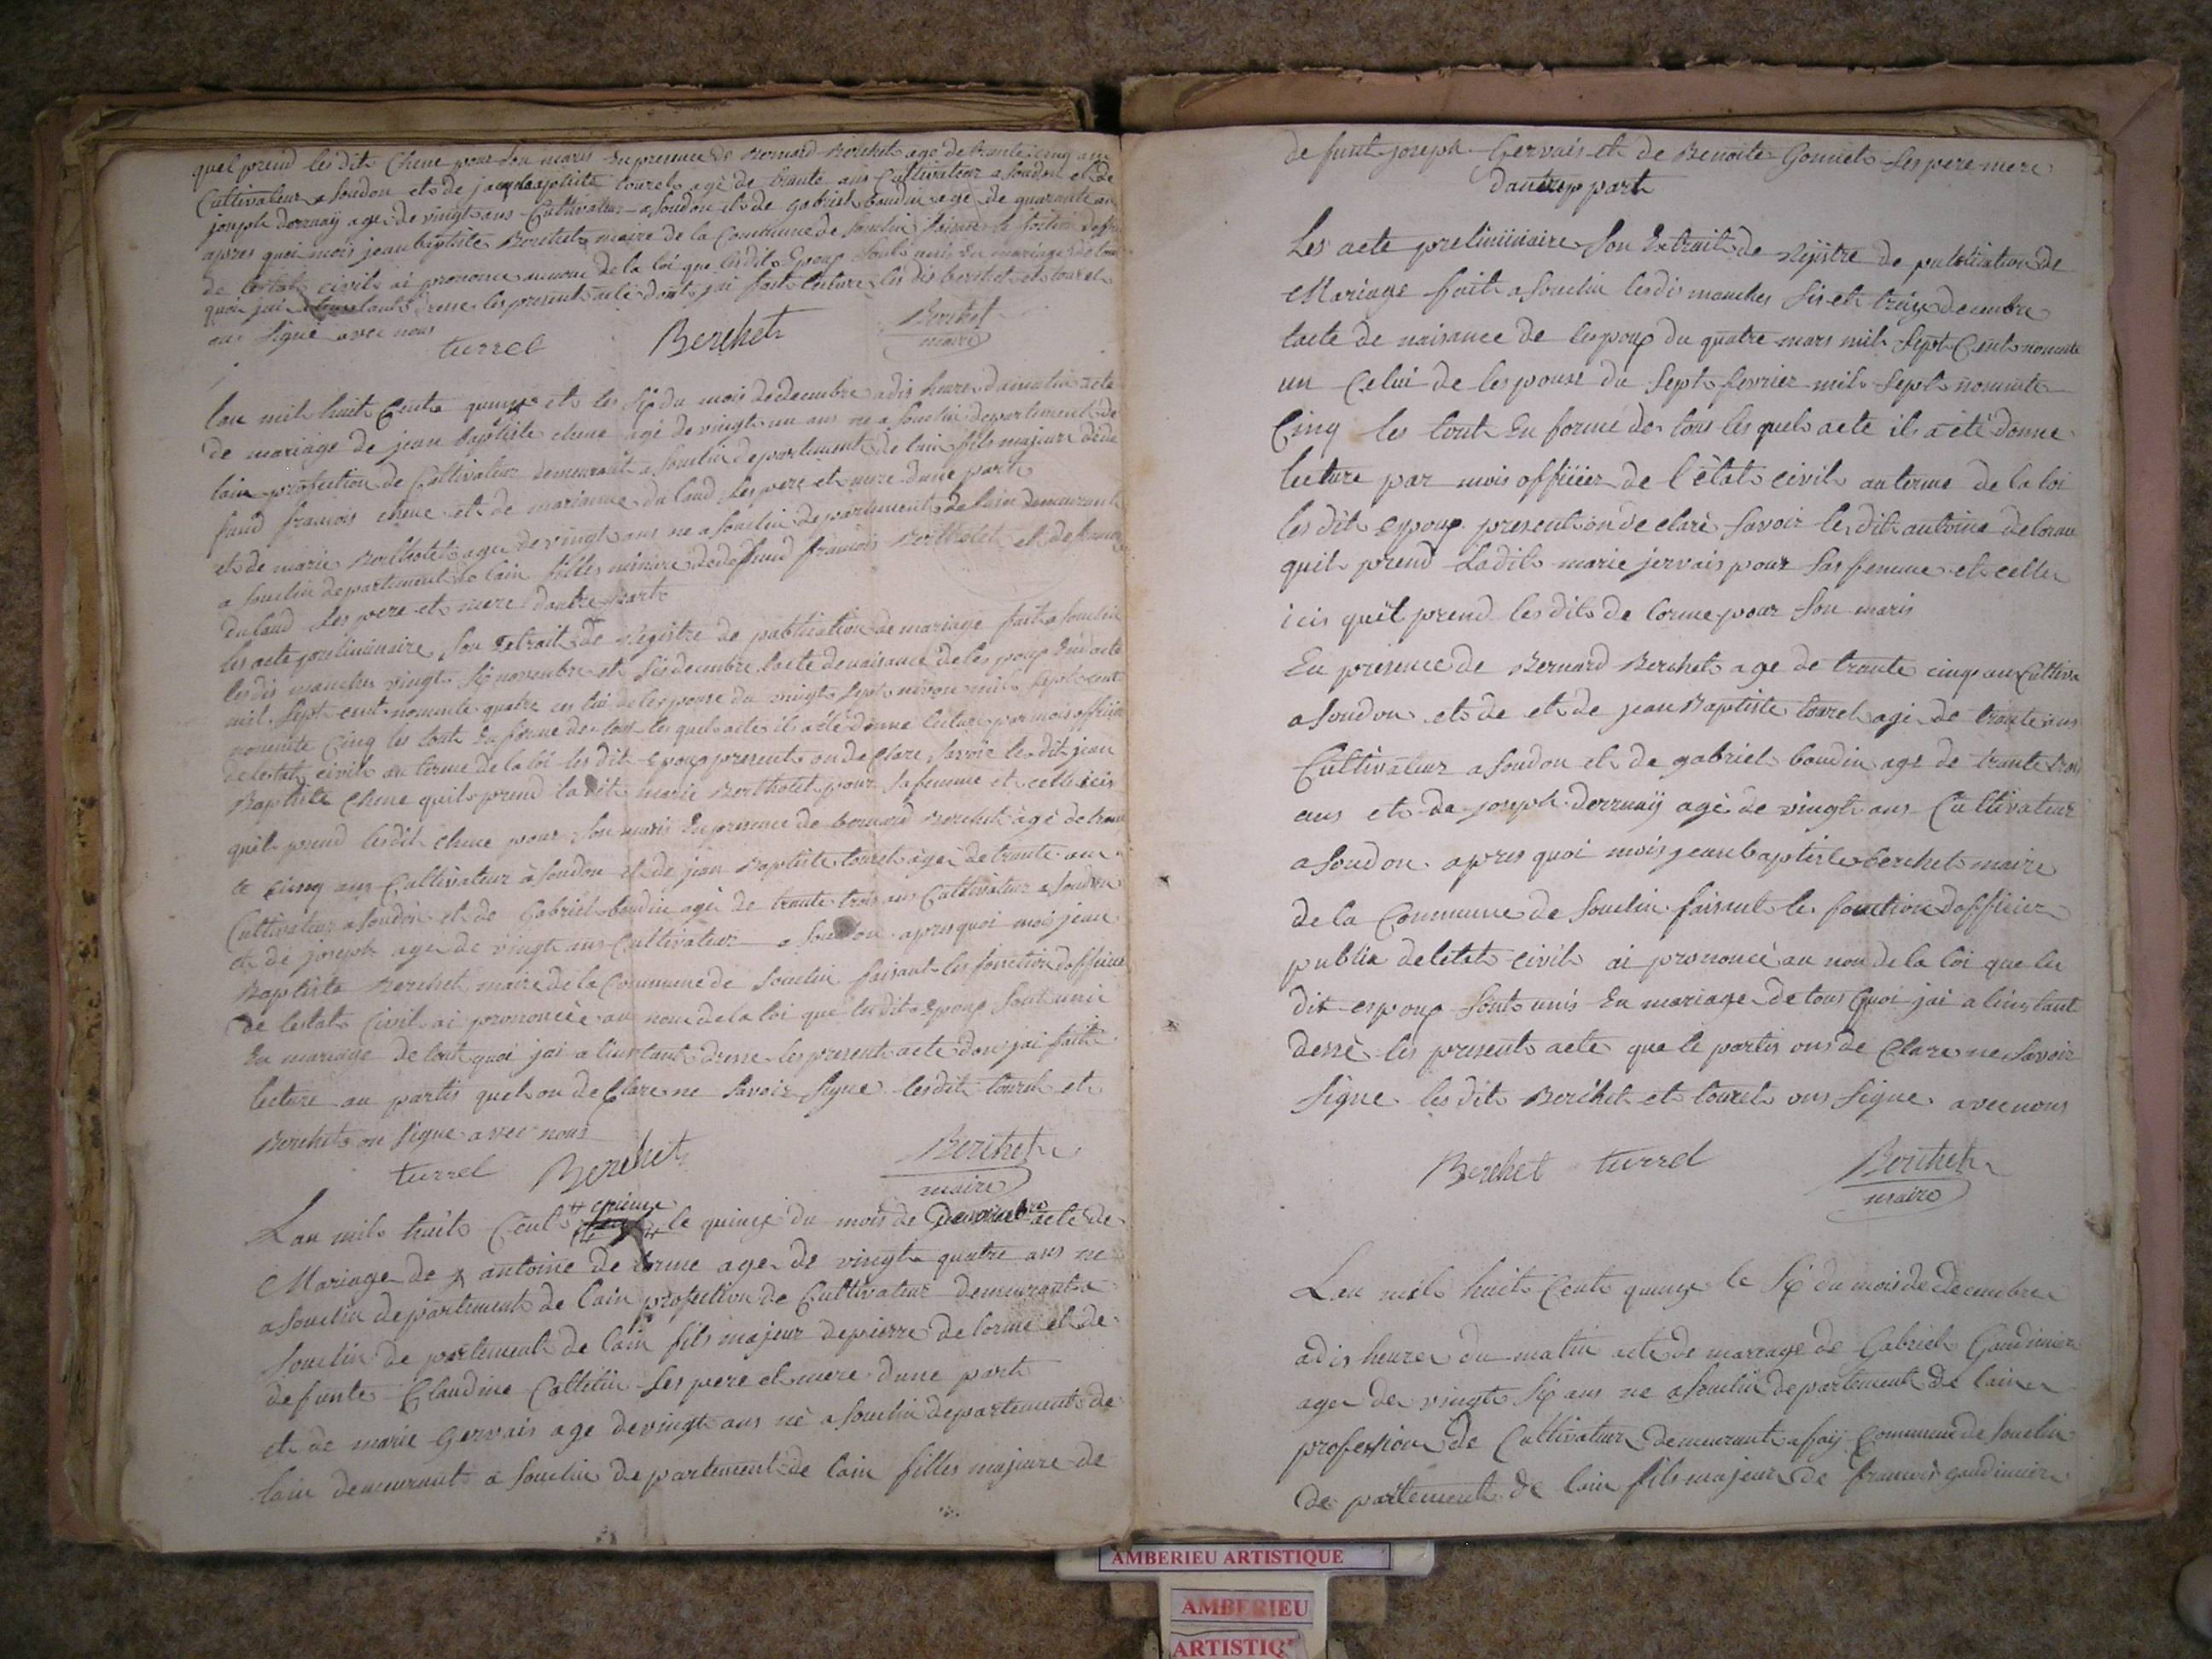 quel prend les dit Chene pour son maris en presence de Bernard Berchet age de trante cinq ans
Cultivateur a Soudon et de jean baptiste touret agé de trante ans Cultivateur a Soudon et de
joseph dernnaÿ age de vingt ans Cultivateur a Soudon et de gabriel boudin age de quarante an
apres quoi mois jean baptiste Berchet maire de la Commune de Souclin faisant le fontion doffi
de lestat civil ai prononce au nom de la loi que les dit Epoup sont unis En mariage de tou
quoi jai a linstant dresse les present acte dont jai fait lecture les dis berchet et touret
ons signé avec nous
turrel Berchet Berchet
maire
lan mil huit Cent quinze et les six du mois de decembre a dis heure du matin acte
de mariage de jean baptiste chene agé de vingt un ans ne a Souclin departement de
lain profection de Cultivateur demeurant a Souclin departement de lain fils majeure dede
fund francois chene et de marianne du laud ses pere et mere dune part
et de marie Bertholet agee de vingt ans ne a Souclin departement de lain demeurant
a Souclin departement de lain filles minure de defund francois Bertholet et de
dulaud ses pere et mere dautre part
les acte preliminaire son Extrait de Registre de publication de mariage fait a Souclin
les dis manches vingt six novembre et sis decembre lacte de naisance de les poup
mil sept cent nonente quatre ces lui de les pouse du vingt sept nivose mil sept cent
nonente Cinq les tout En forme de tous les quels acte ils a été donne lecture par mois offiier
de lestat civil au terme de la loi les dit Epoup present on de Clare savoir le dit jean
Baptiste Chene quil prend la dit marie Bertholet pour sa femme et celle icis
quil prend les dit chene pour son maris En presence de bernard Berchet agé de tran
te cinq ans Cultivateur a Soudon et de jean Baptiste touret agé de trante ans
Cultivateur a Soudon et de Gabriel boudin agé de trante trois ans Cultivateur a Soudon
et de joseph age de vingt ans Cultivateur a Soudon apres quoi moi jean
Baptiste Berchet maire de la Commune de Souclin faisant les fonction doffiice
de lestat Civil ai prononcée au nom de la loi que les dit Epoup sont unie
En mariage de tout quoi jai a linstant dresse les present acte don jai fait
lecture au partis quel on de Clare ne savoir signe les dit touret et
Berchet on signe avec nous
turrel Berchet Berchet
maire
Lan mil huit Cent le quinze du mois de decembre acte de
Mariage de antoine de lorme age de vingt quatre ans ne
a Souclin departement de lain profection de Cultivateur demeurant a
Souclin de partement de lain fils majeur de pierre de lorme et de
defunte Claudine Cattelin ses pere et mere dune part
et de marie Gervais age de vingt ans né a Souclin departement de
lain demeurant a Souclin de partement de lain filles majeure de
de funt joseph Gervais et de Benoite Gonnet ses pere mere
dautre part
Les acte preliminaire son Extrait de Rejistre de publication de
Mariage fait a Souclin les dis manches sis et traize decembre
lacte de naisance de lespoup du quatre mars mil sept Cent nonente
un Celui de les pouse du sept fevrier mil sept nonente
Cinq les tout En forme de tous les quels acte il a été donne
lecture par mois offiiier de l'état civil au terme de la loi
les dit Epoup present on de claré savoir les dit antoine de lorme
quil prend Ladit marie jervais pour sas femme et celle
icis quel prend les dit de lorme pour son maris
En presence de Bernard Berchet age de trante cinq ans Cultiva
a Soudon et de et de jean Baptiste touret agé de trante ans
Cultivateur a Soudon et de gabriel boudin age de trante trois
ans et de joseph dernnaÿ agé de vingt ans Cultivateur
a Soudon apres quoi mois jean baptiste berchet maire
de la Commune de Souclin faisant le fonction dofficier
publia de letat civil ai prononcé au non de la loi que les
dit espoup sont unis En mariage de tous Quoi jai a linstant
dessé les present acte que le partis ons de Clare ne savoir
signe les dit Berchet et touret ons signe avec nous
Berchet turrel Berchet
maire
Lan mil huit Cent quinze le six du mois de decembre
a dis heure du matin acte de mariage de Gabriel Gaudinier
age de vingt six ans ne a Souclin departement de lain
profession de Cultivateur demeurant a faÿ Commune de Souclin
de partement de lain fils majeur de francois gaudinier
AMBERIEU ARTISTIQUE
AMBERIEU
ARTISTIQ